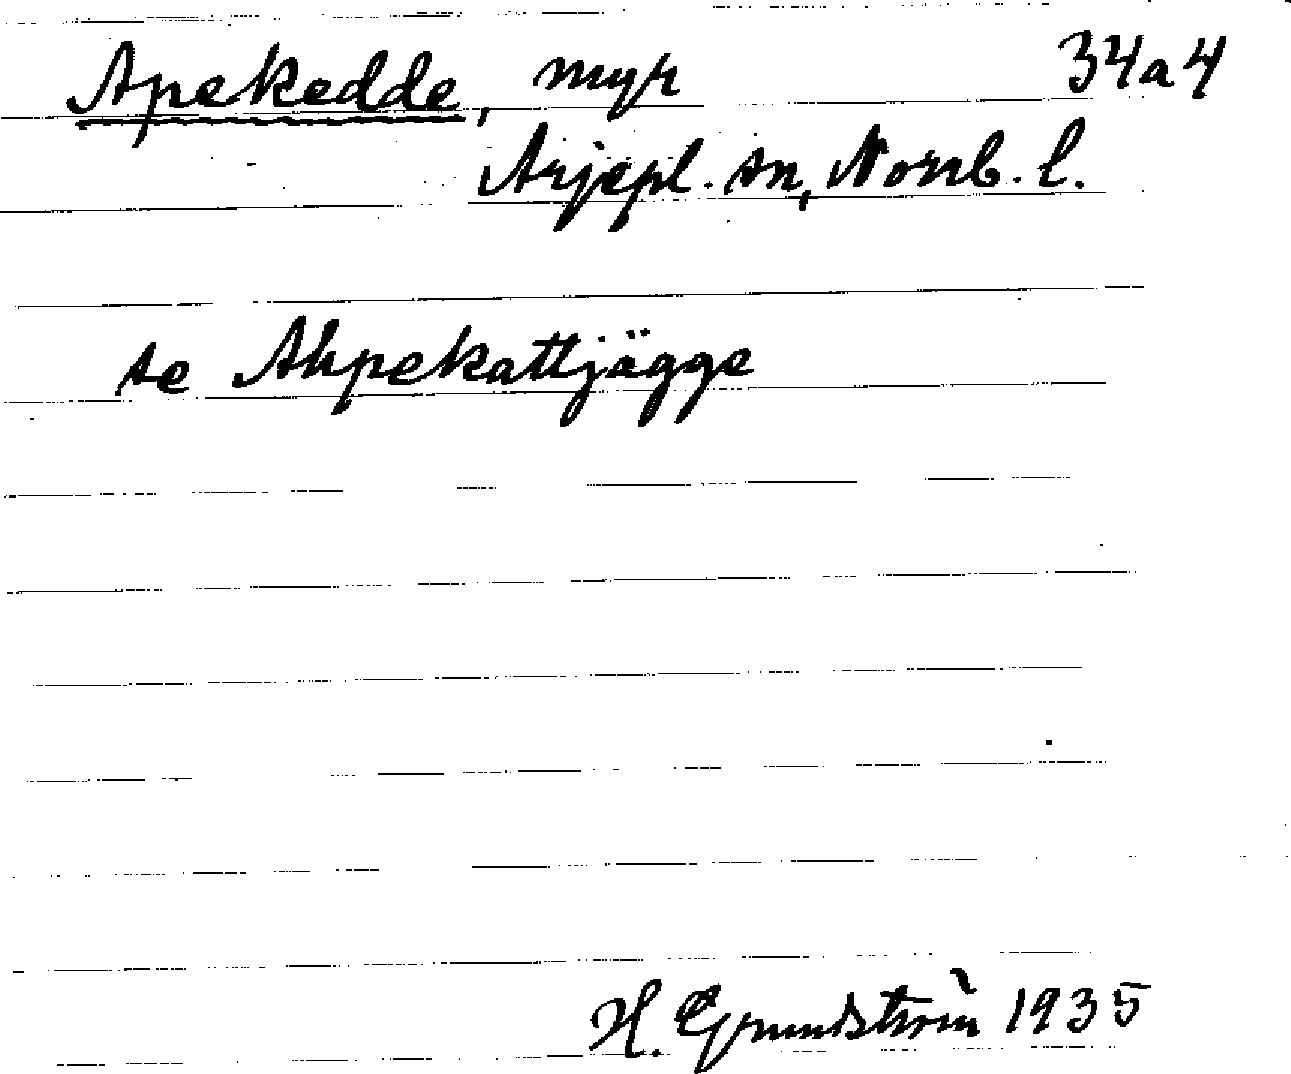 Apekedde, myr 34a4
Arjepl. sn, Norrb. l.
se Ahpekattjägge
H. Grundström 1935